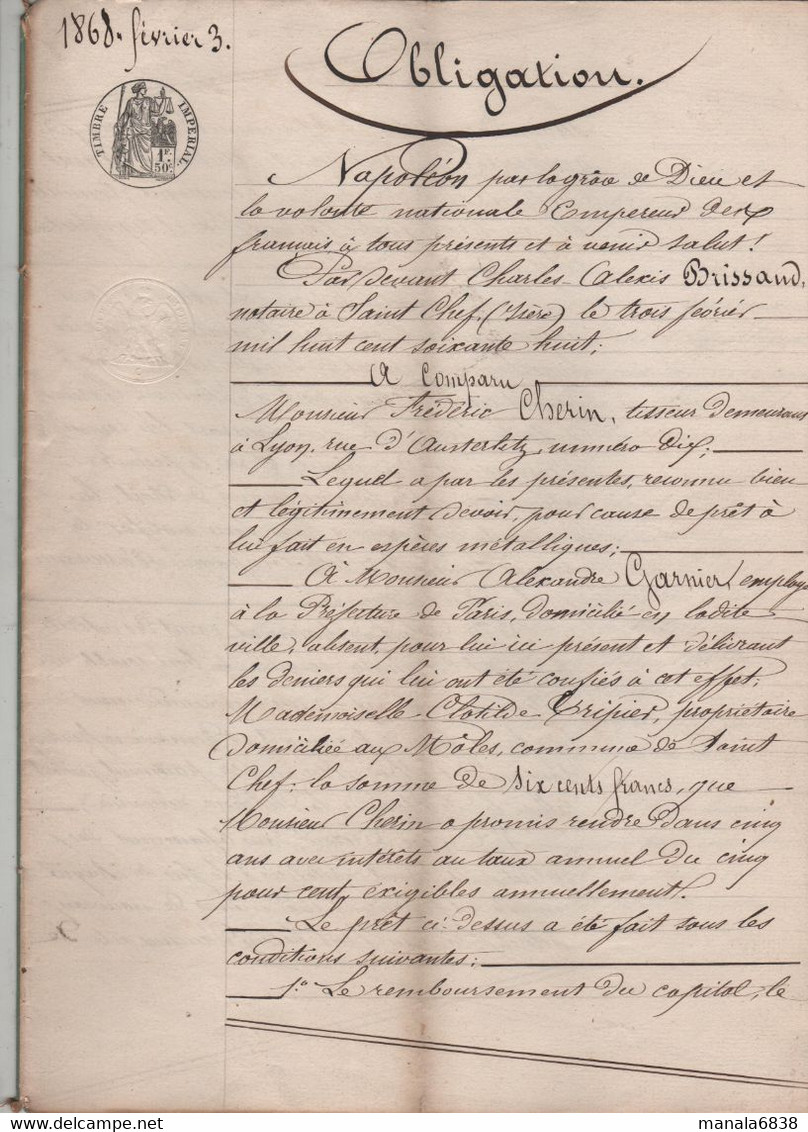 1868. février 3.
Obligation.
TIMBRE IMPERIAL
1F.
50c
Napoléon par la grâce de Dieu et
la volonté nationale Empereur des
français à tous présents et à venir salut!
Par devant Charles Alexis Brissaud,
notaire à Saint Chef (Isère) le trois février
mil huit cent soixante huit;
A Comparu
Monsieur Frédéric Cherin, tisseur demeurant
à Lyon, rue d'Austerlitz, numéro dix;
Lequel a par les présentes, reconnu bien
et légitimement devoir, pour cause de prêt à
lui fait en espèces métalliques;
A Monsieur Alexandre Garnier, employé
à la Préfecture de Paris, domicilié en ladite
ville, absent, pour lui ici présent et délivrant
les deniers qui lui ont été confiés à cet effet;
Mademoiselle Clotilde Tripier, propriétaire
domiciliée aux Môles, commune de Saint
Chef: la somme de six cents francs, que
Monsieur Cherin a promis rendre dans cinq
ans avec intérêts au taux annuel du cinq
pour cent, exigibles annuellement.
Le prêt ci-dessus a été fait sous les
conditions suivantes:
1° Le remboursement du capital, le
manala6838